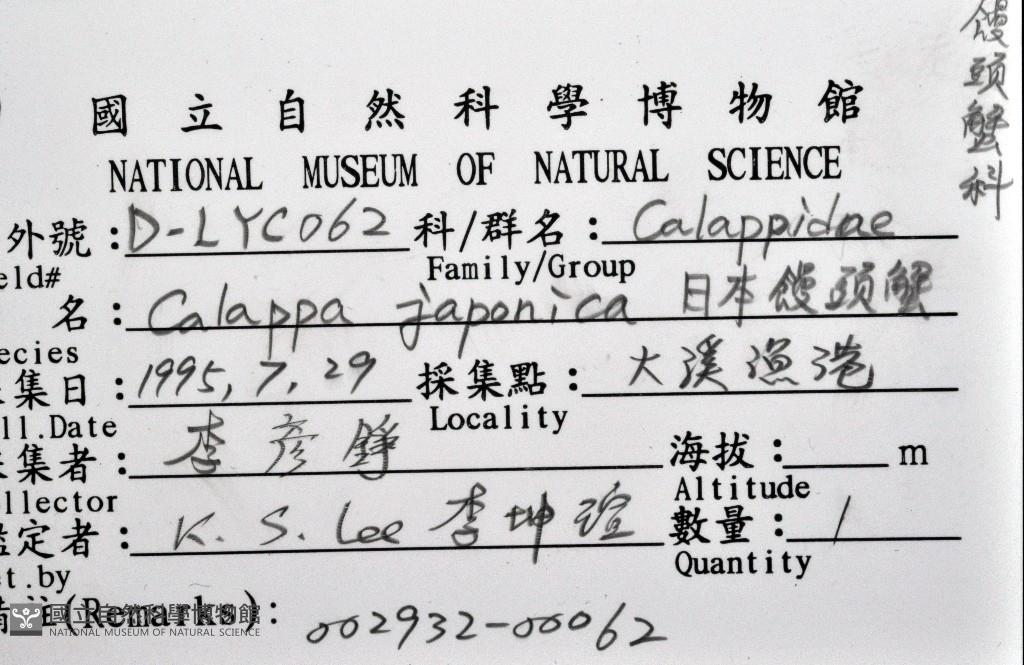 饅頭蟹科
國立自然科學博物館
NATIONAL MUSEUM OF NATURAL SCIENCE
外號：D-LYC062 科/群名：Calappidae
eld# Family/Group
名：Calappa japonica 日本饅頭蟹
ecies
集日：1995, 7, 29 採集點：大溪漁港
ll.Date Locality
集者：李彥錚 海拔：m
llector Altitude
定者：K. S. Lee 李坤瑄 數量：1
et.by Quantity
註(Remarks)：002932-00062
國立自然科學博物館
NATIONAL MUSEUM OF NATURAL SCIENCE